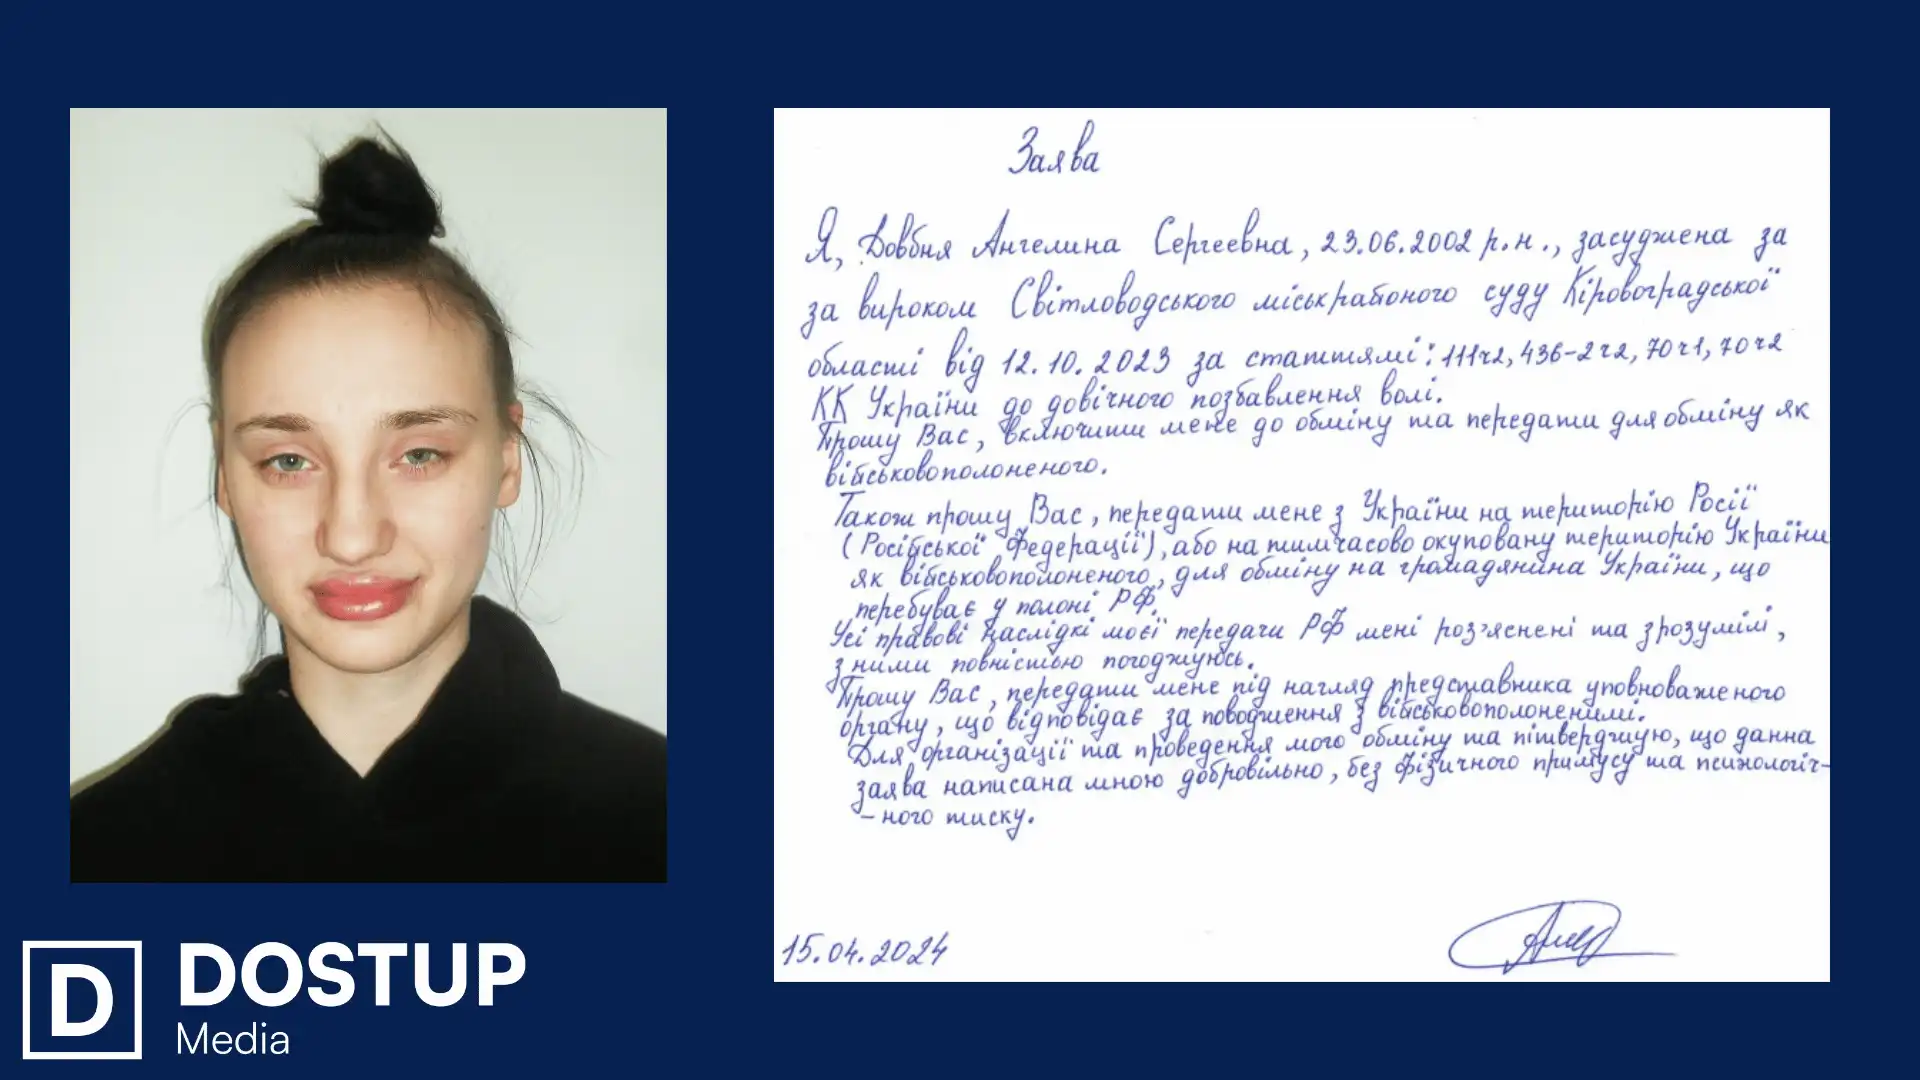 Заява
Я, Довбня Ангелина Сергеевна, 23.06.2002 р.н., засуджена за
за вироком Світловодського міськрайоного суду Кіровоградської
області від 12.10.2023 за статтямі: 111ч2, 436-2ч2, 70ч1, 70ч2
КК України до довічного позбавлення волі.
Прошу Вас, включити мене до обміну та передати для обміну як
військовополоненого.
Також прошу Вас, передати мене з України на територію Росії
(Російської Федерації), або на тимчасово окуповану територію України
як військовополоненого, для обміну на громадянина України, що
перебуває у полоні РФ.
Усі правові наслідкі моєї передачи РФ мені роз'яснені та зрозумілі,
з ними повністью погоджуюсь.
Прошу Вас, передати мене під нагляд представника уповноваженого
органу, що відповідає за поводження з військовополоненимі.
Для організації та проведення мого обміну та пітверджую, що данна
заява написана мною добровільно, без фізичного примусу та психологіч-
-ного тиску.
15.04.2024
D DOSTUP
Media